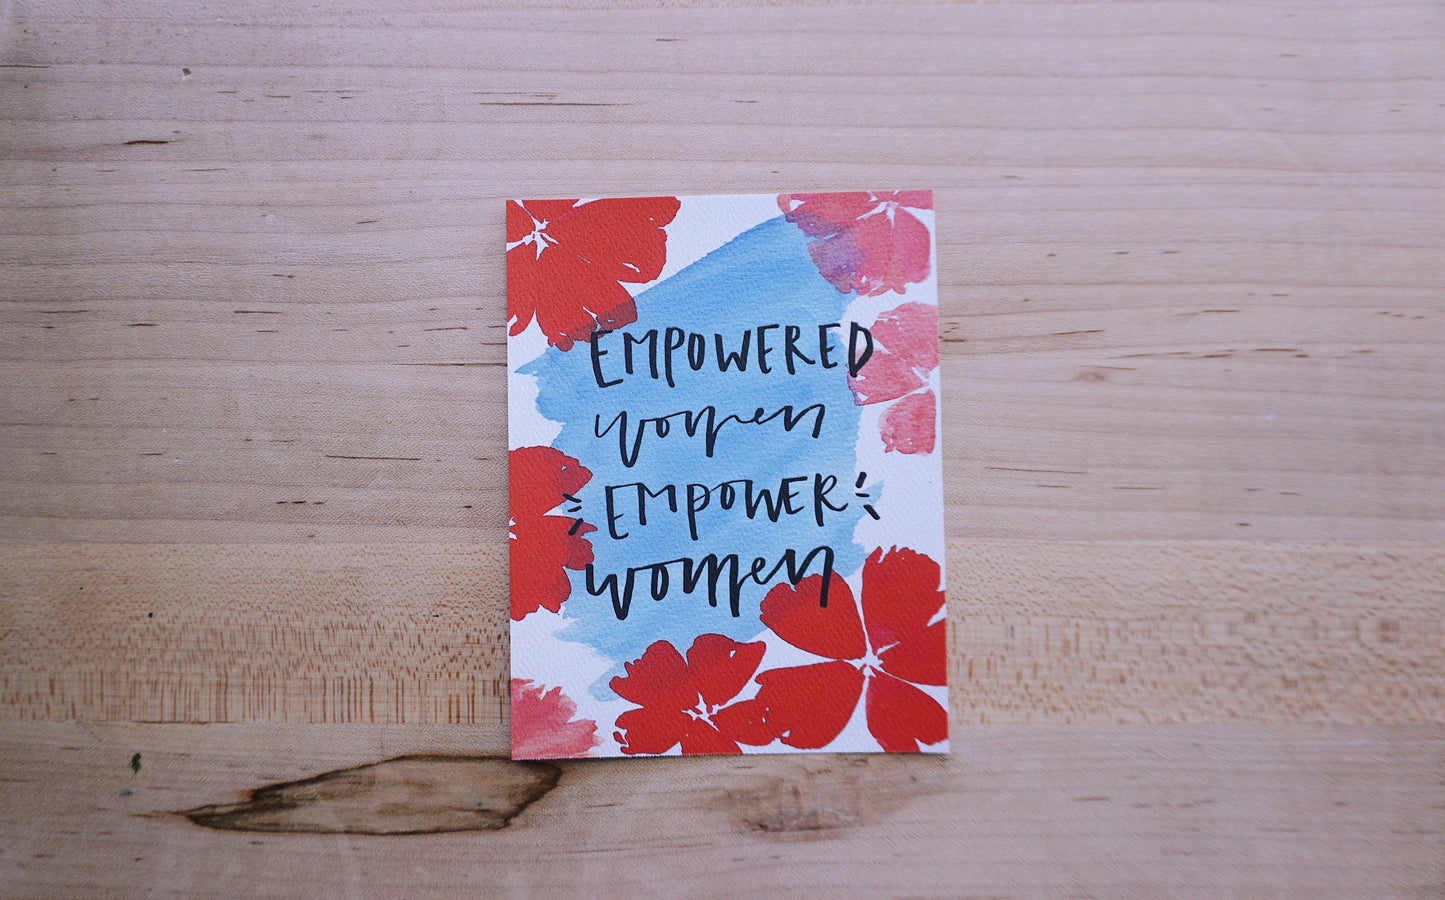 EMPOWERED
women
EMPOWER
women